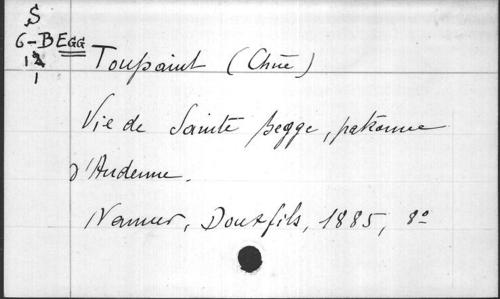 S
6-BEGG
12
1
Toupaint (Chne)
Vie de Sainte Begge, patronne
d'Andenne.
Namur, Douxfils, 1885, 8º